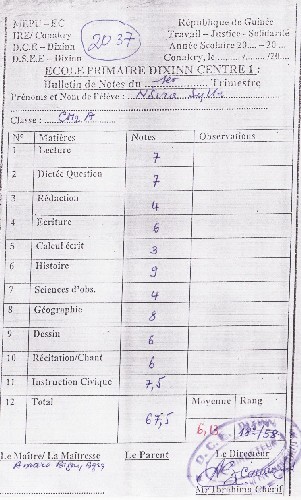 MEPU – EC République de Guinée
IRE/ Conakry Travail – Justice – Solidarité
D.C.E – Dixinn Année Scolaire 20.... – 20....
D.S.E.E – Dixinn Conakry, le......../....../20....
2037
ECOLE PRIMAIRE DIXINN CENTRE 1 :
Bulletin de Notes du 1er Trimestre
Prénoms et Nom de l'élève : Sylla
Classe : CM2 A
N° Matières Notes Observations
1 Lecture 7
2 Dictée Question 7
3 Rédaction 4
4 Ecriture 6
5 Calcul écrit 3
6 Histoire 9
7 Sciences d'obs. 4
8 Géographie 8
9 Dessin 6
10 Récitation/Chant 6
11 Instruction Civique 7,5
12 Total 67,5 Moyenne Rang
6,13 /58
Le Maître/ La Maîtresse Le Parent Le Directeur
Mr Ibrahima Chérif